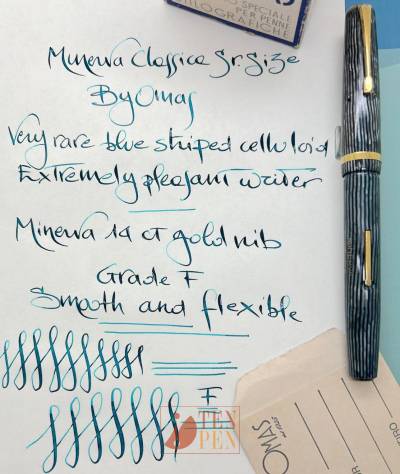 SPECIALE
PER PENNE
STILOGRAFICHE
Minerva Classica Sr. Size
By Omas
Very rare blue striped celluloid
Extremely pleasant writer
Minerva 14 ct gold nib
Grade F
Smooth and flexible
F
TEN
PEN
OMAS